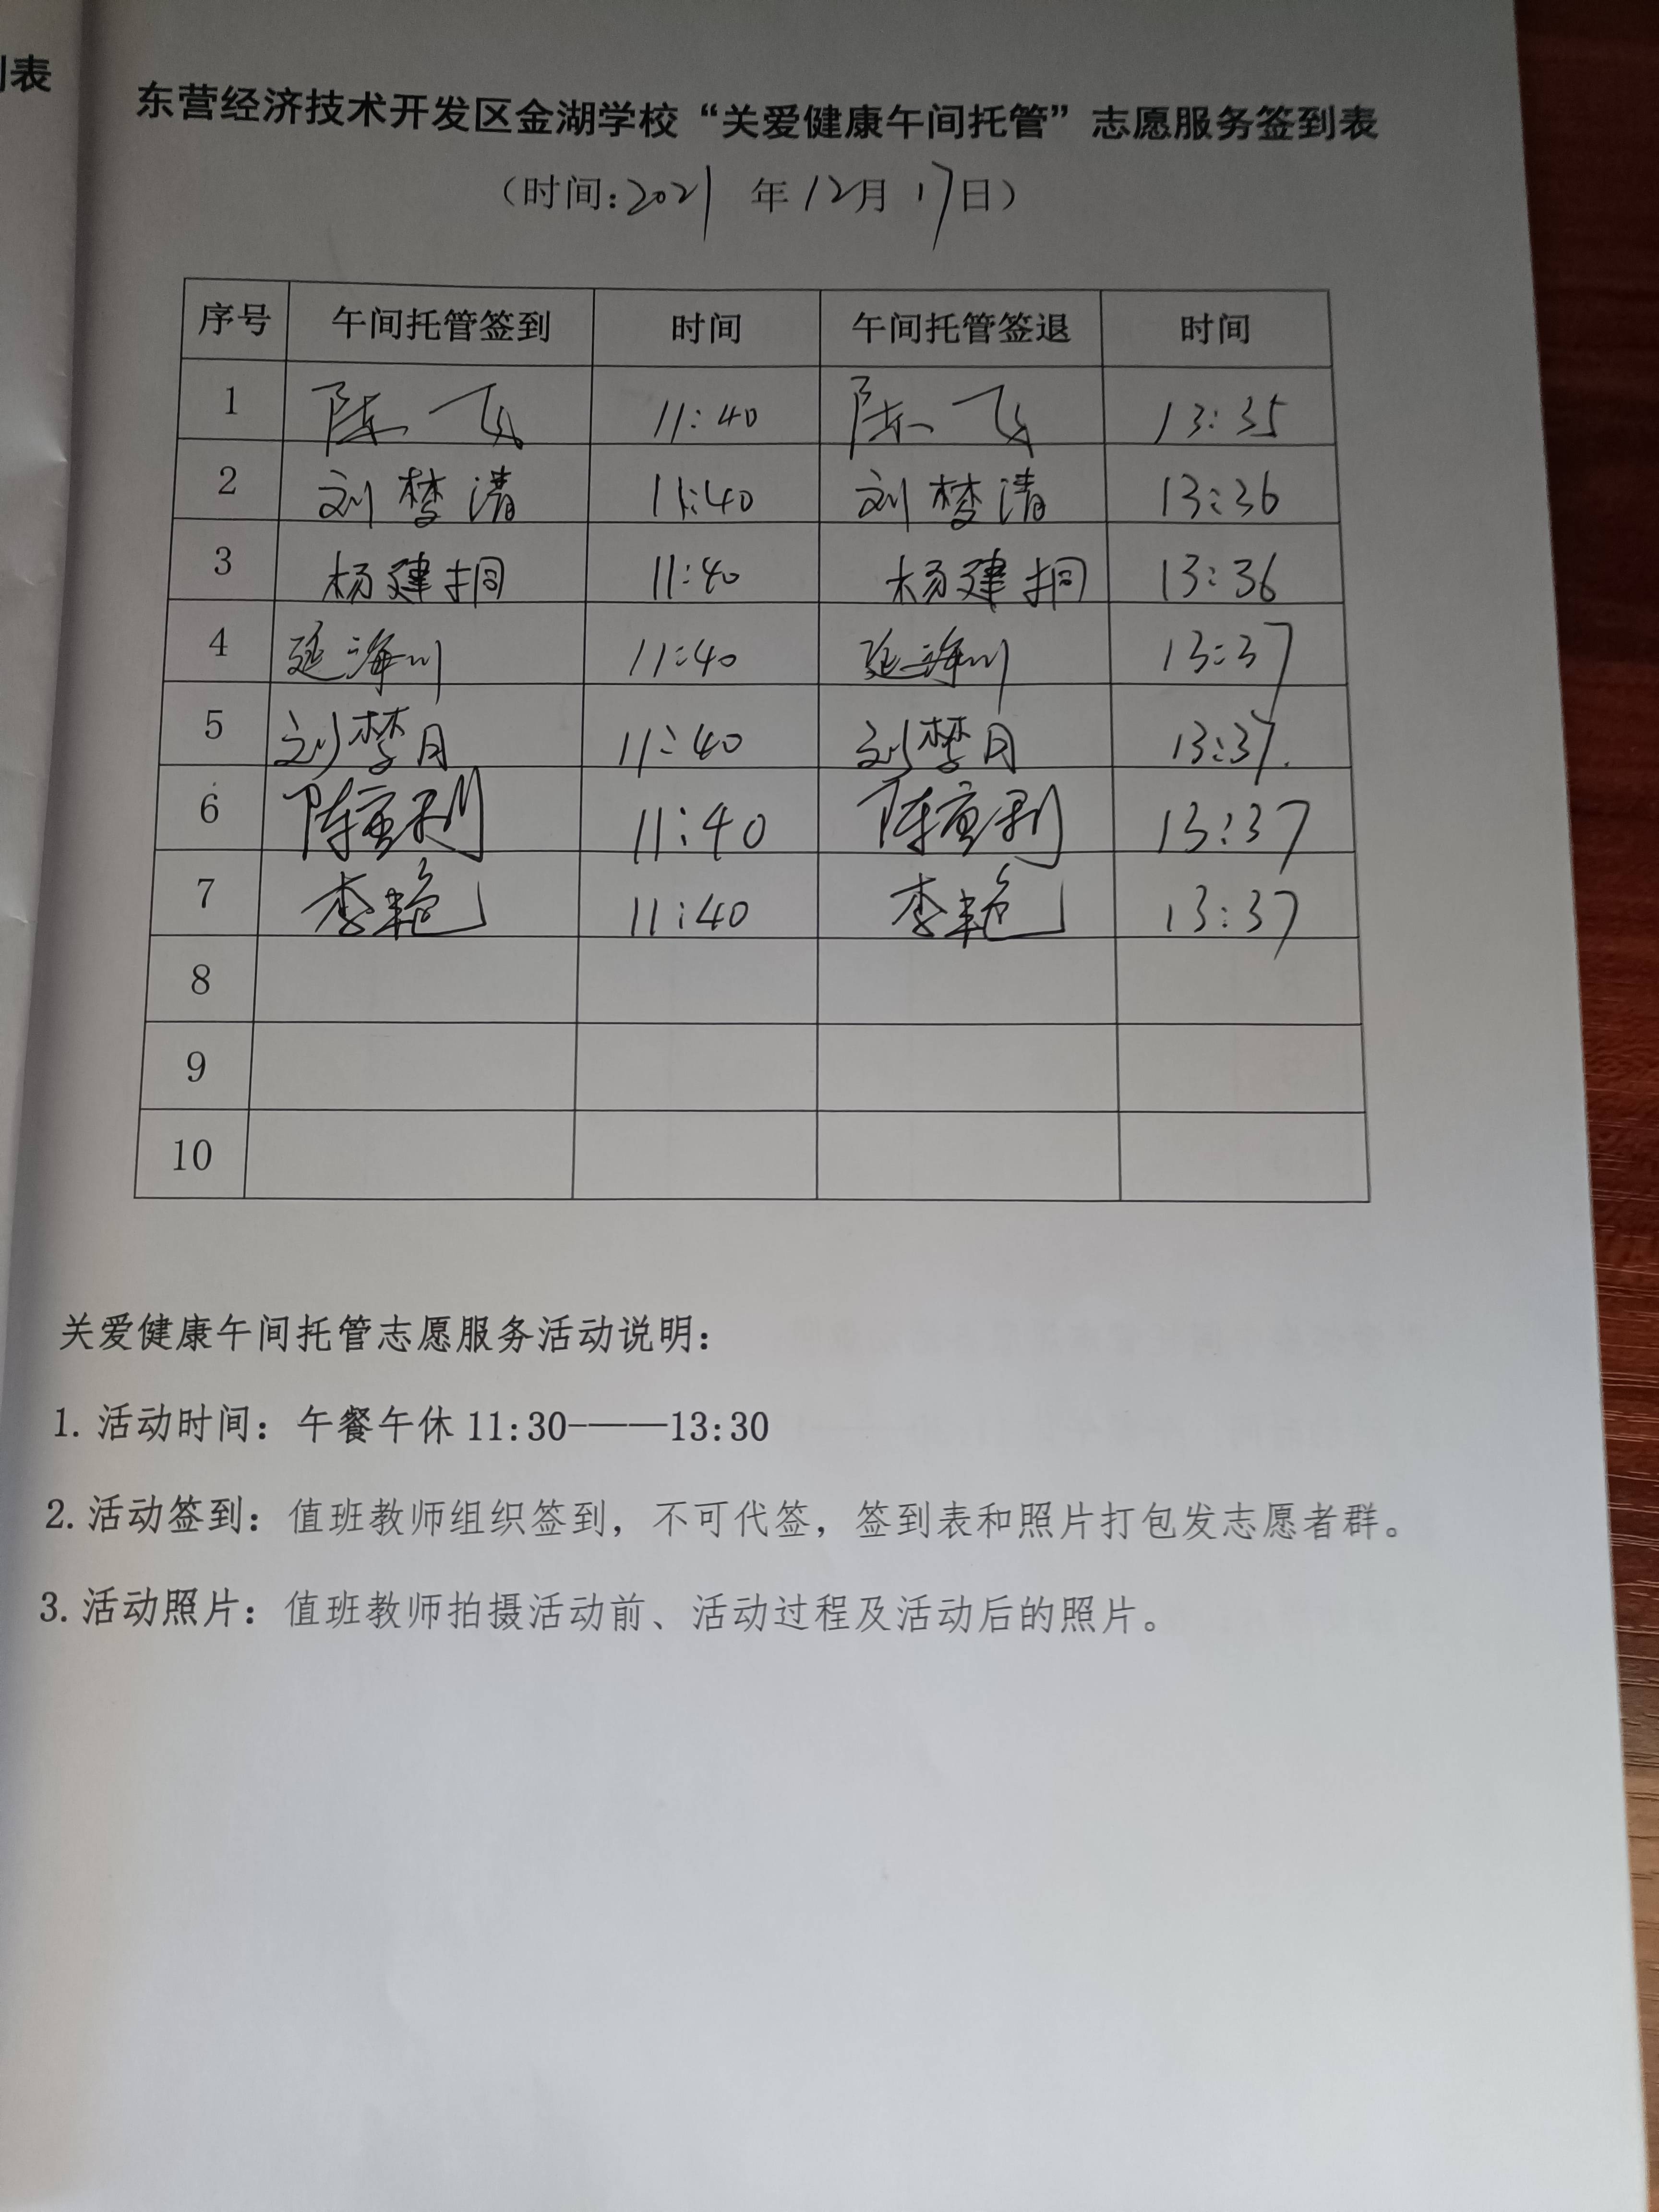 到表
东营经济技术开发区金湖学校“关爱健康午间托管”志愿服务签到表
（时间:2021 年 12月 17日）
序号 午间托管签到 时间 午间托管签退 时间
1 陈飞 11:40 陈飞 13:35
2 刘梦清 11:40 刘梦清 13:36
3 杨建桐 11:40 杨建桐 13:36
4 延海川 11:40 延海川 13:37
5 刘梦月 11:40 刘梦月 13:37.
6 陈 11:40 陈 13:37
7 李艳 11:40 李艳 13:37
8
9
10
关爱健康午间托管志愿服务活动说明：
1. 活动时间：午餐午休 11:30-——13:30
2. 活动签到：值班教师组织签到，不可代签，签到表和照片打包发志愿者群。
3. 活动照片：值班教师拍摄活动前、活动过程及活动后的照片。